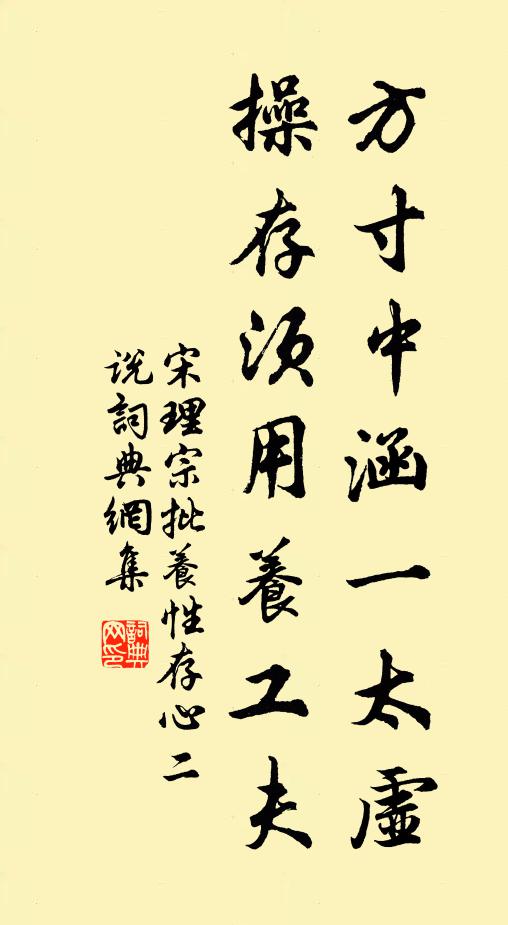 方寸中涵一太虛
操存須用養工夫
宋理宗批養性存心二
説詞典網集
詞典
网印